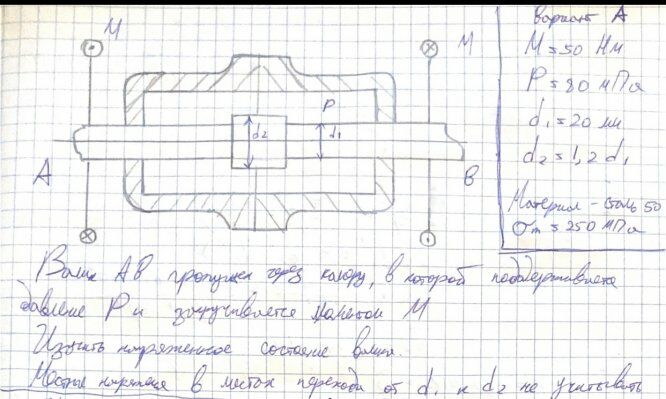 M
M
P
d2
d1
A
B
Вариант А
M = 50 Нм
P = 80 мПа
d1 = 20 мм
d2 = 1,2 d1
Материал - сталь 50
σт = 250 мПа
Валик АВ пропущен через камеру, в которой поддерживается
давление P и закручивается моментом M
Изучить напряженное состояние валика.
Местные напряжения в местах перехода от d1 к d2 не учитывать